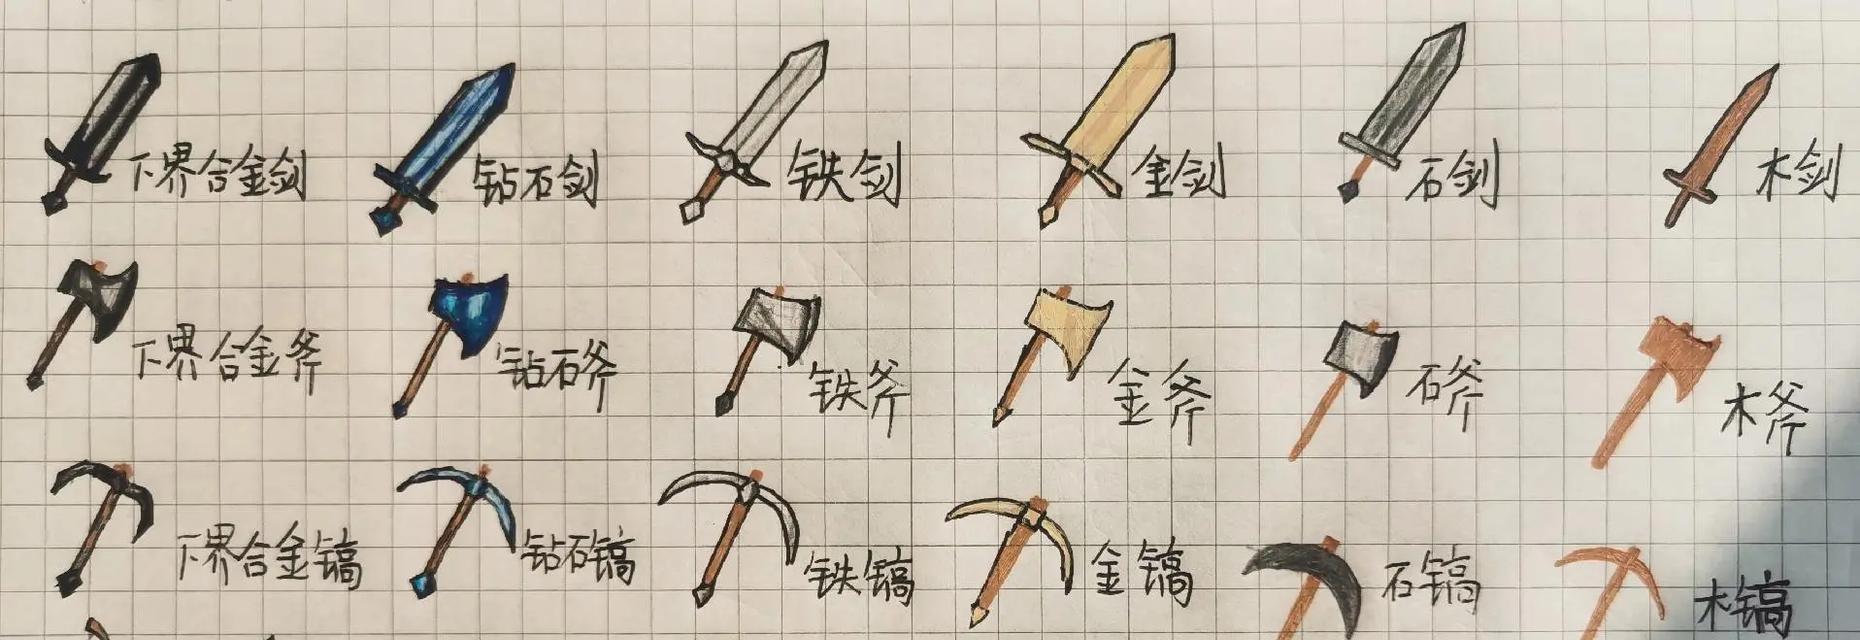 下界合金剑 钻石剑 铁剑 金剑 石剑 木剑
下界合金斧 钻石斧 铁斧 金斧 石斧 木斧
下界合金镐 钻石镐 铁镐 金镐 石镐 木镐